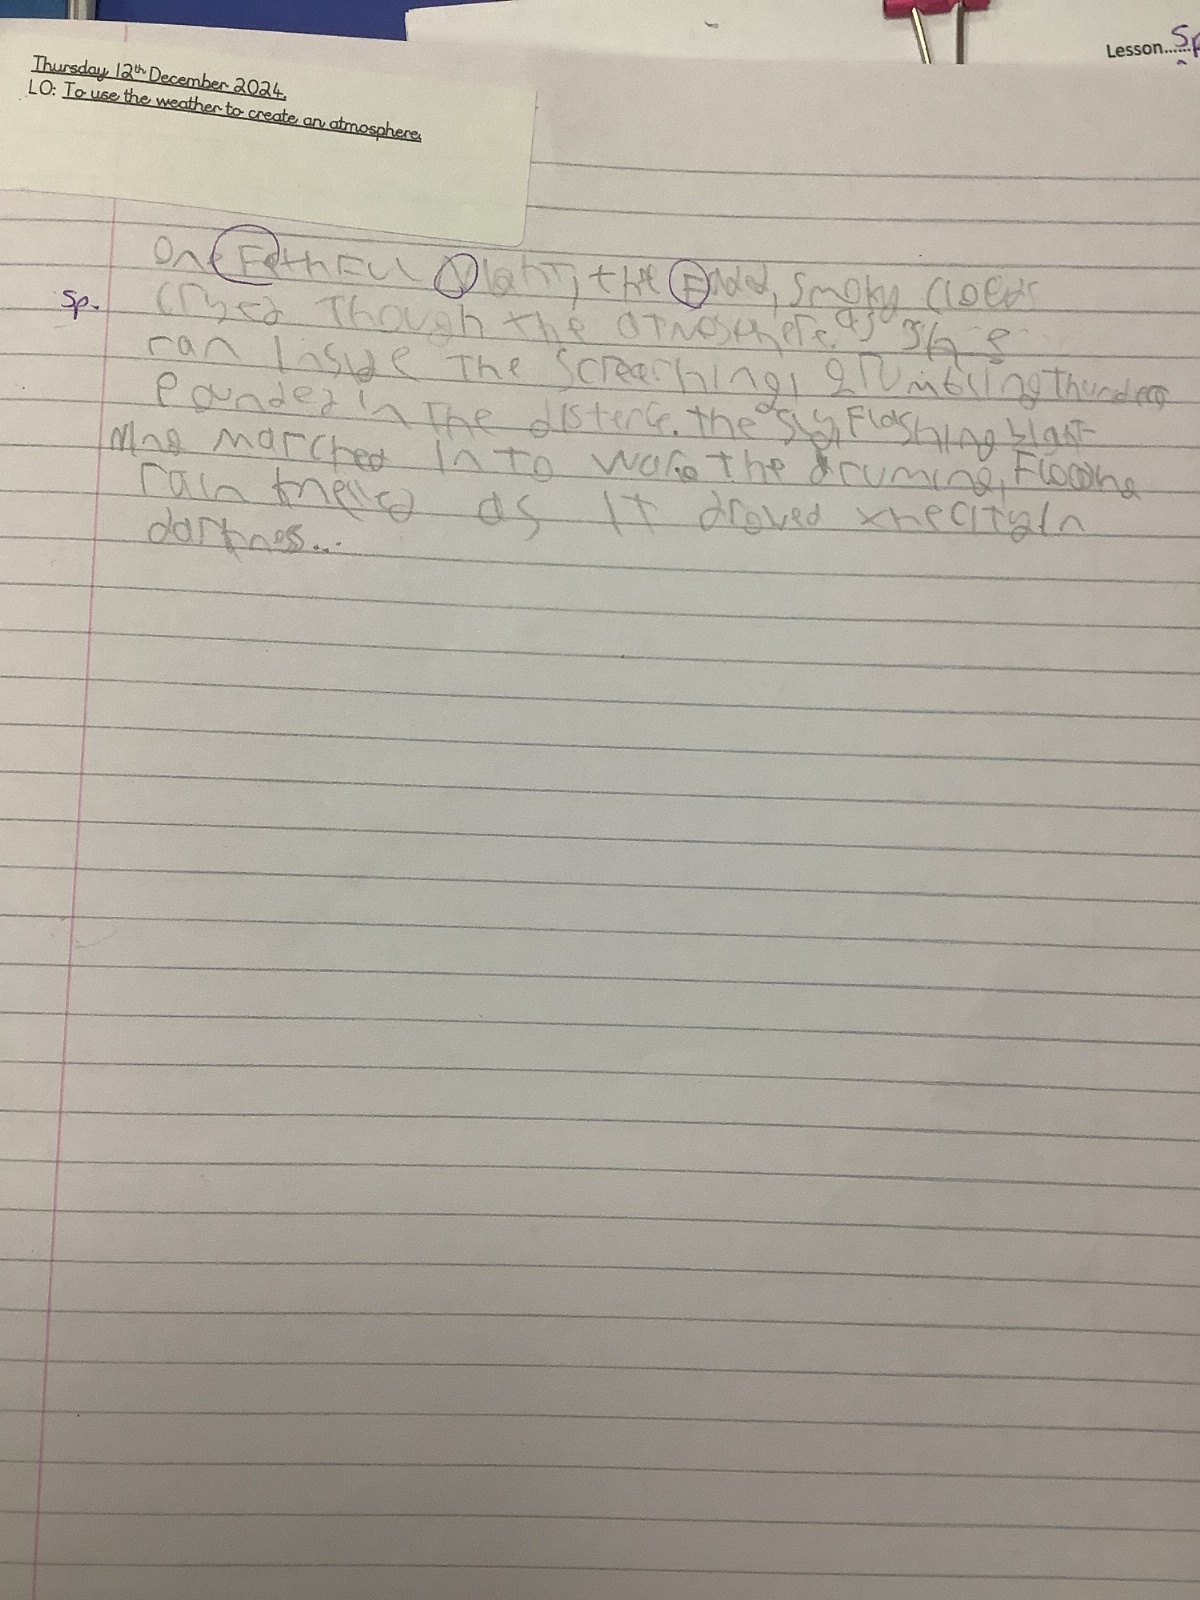 Lesson......Sp
Thursday 12th December 2024
LO: To use the weather to create an atmosphere
One Fathful Night, the Ended, Smoky
Sp.
Cryed Though the atmosthere. as she
ran Inside The Screarhing, grumbling Thunder
Pounded in The distence. the sly, Flashing Light
Ning marched In to the druming, Flooding
rain as IT droved the city In
darknes...